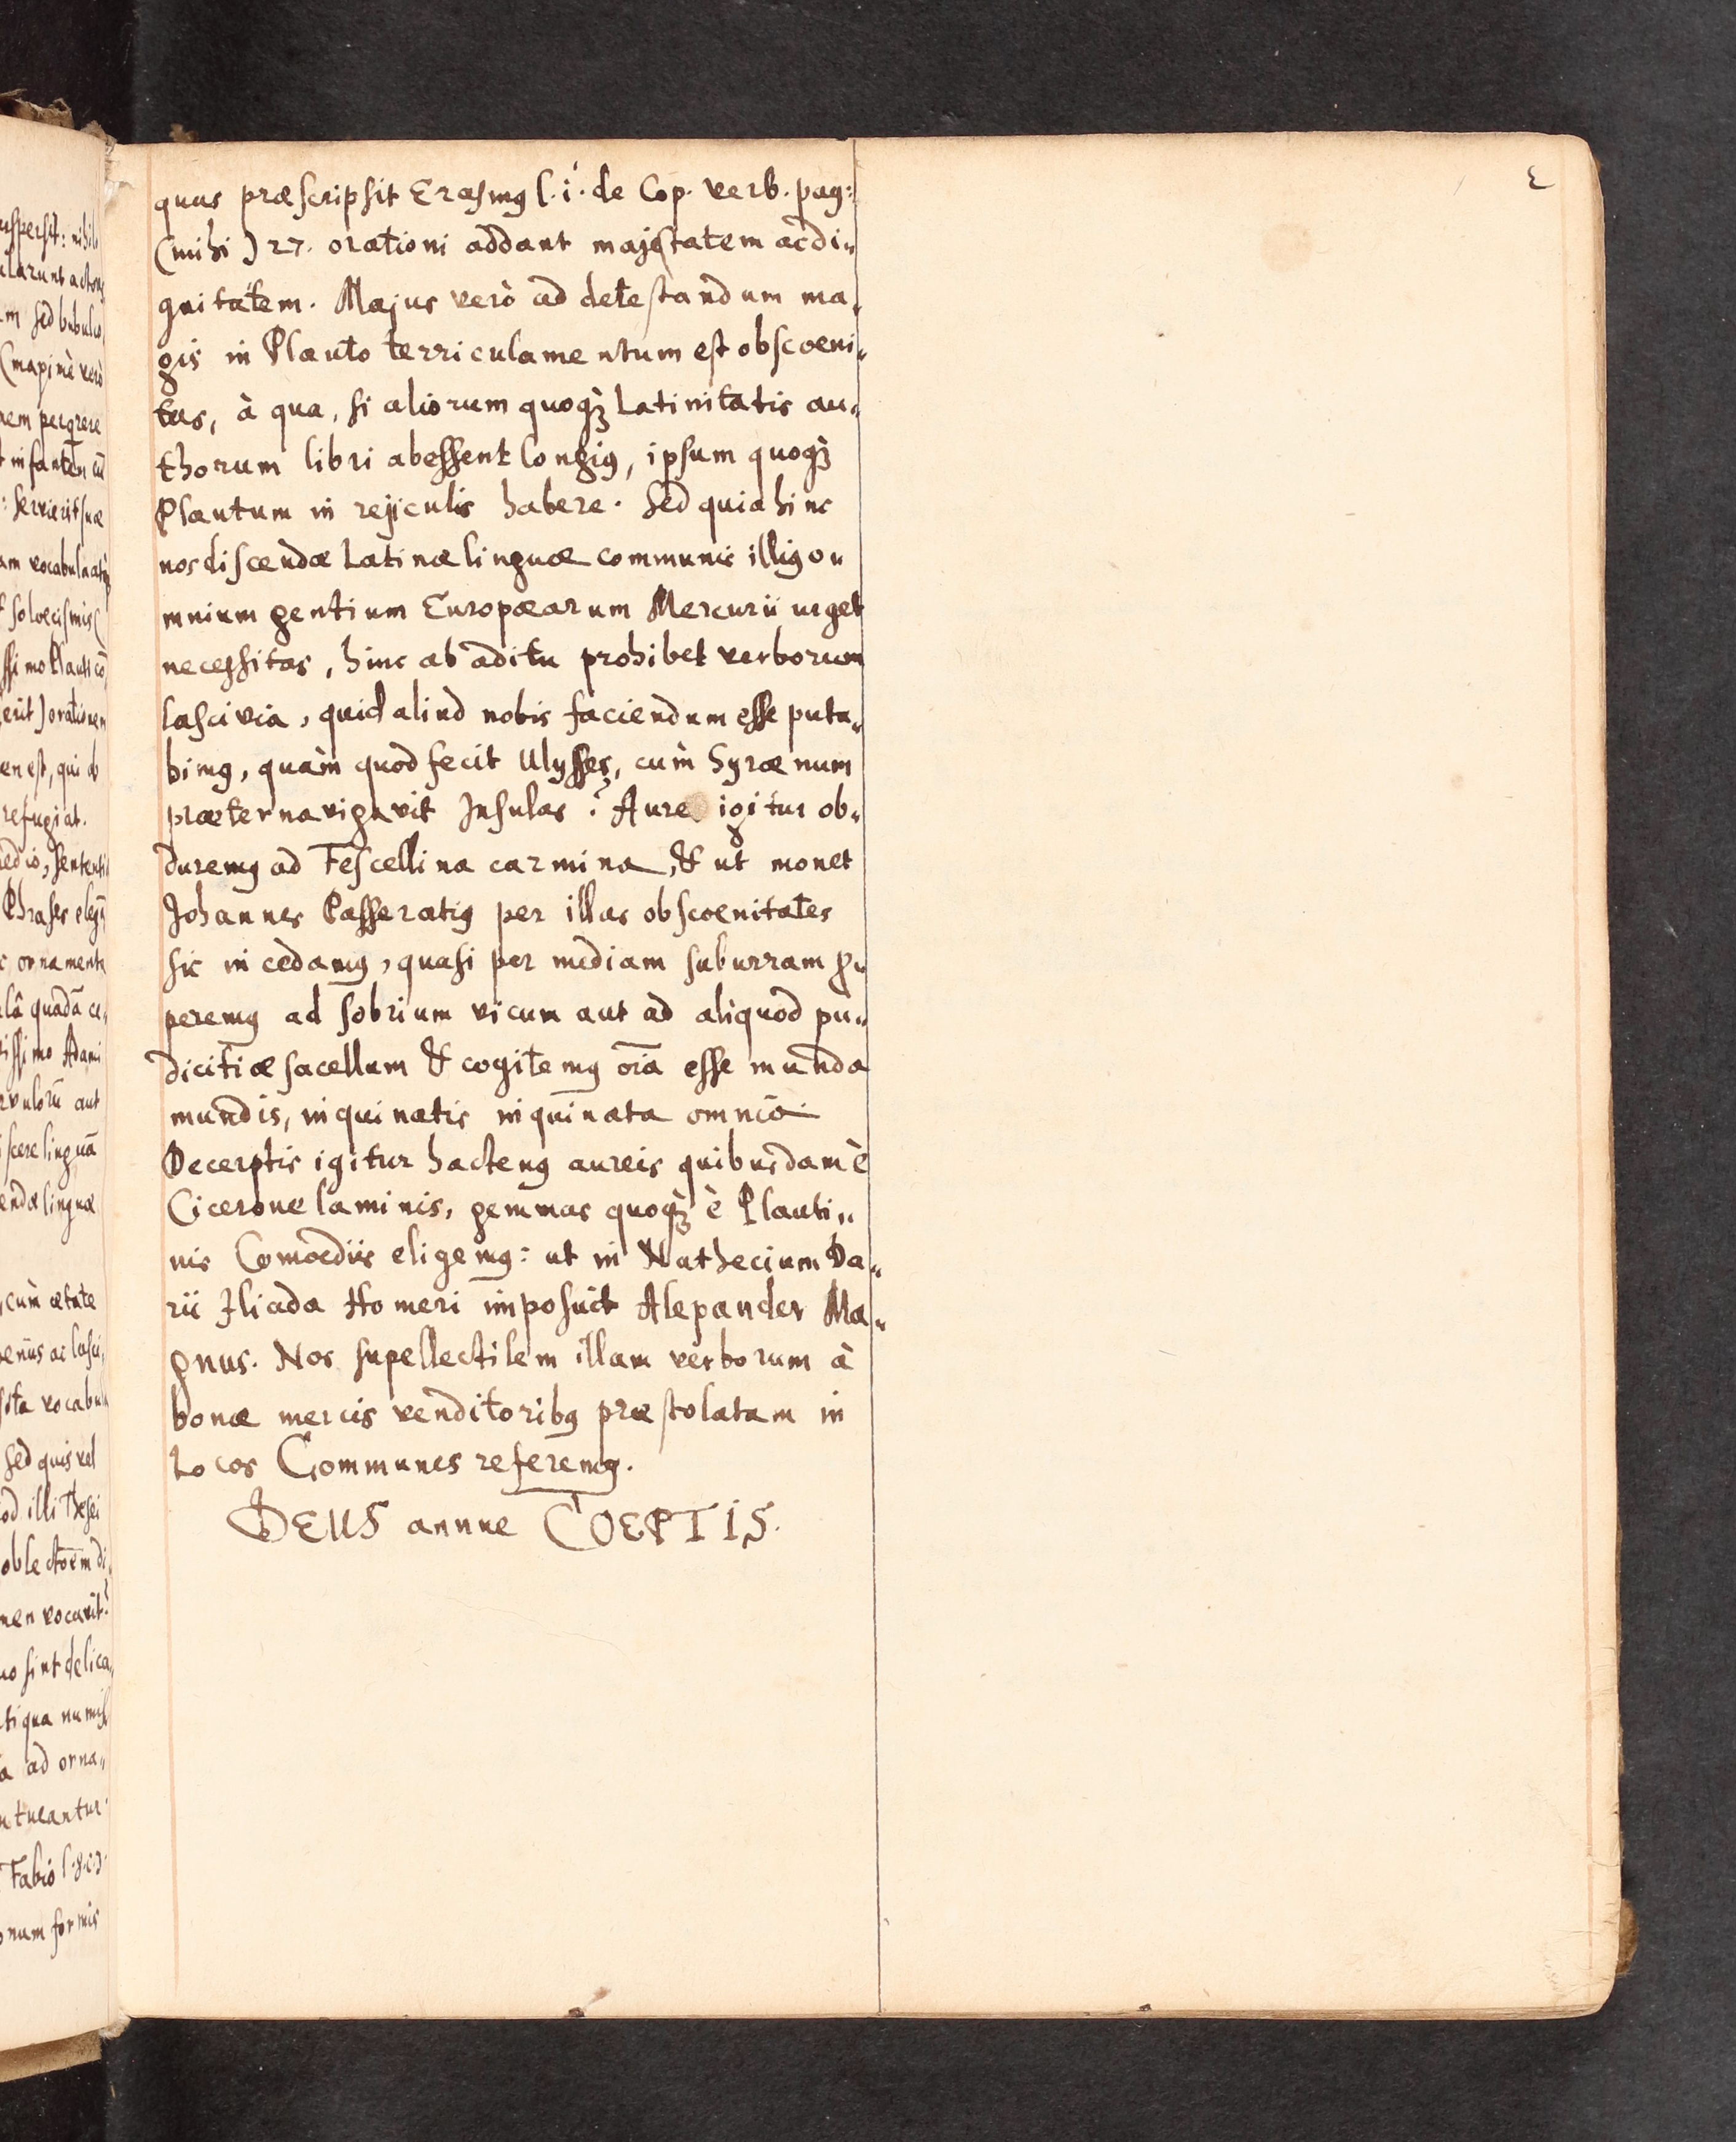 quas præscripsit Erasmꝰ l. i. de Cop. verb. pag:
(mihi) 27. orationi addant majestatem ac di„
gnitatem. Majus verò ad detestandum ma„
gis in Plauto terriculamentum est obscoeni„
tas, à qua, si aliorum quoqꝫ Latinitatis au„
thorum libri abessent longiꝰ, ipsum quoqꝫ
Plautum in rejiculis habere. Sed quia hinc
nos discendæ Latinæ linguæ communis illiꝰ o„
mnium gentium Europæarum Mercurii urget
necessitas, hinc ab aditu prohibet verborum
lascivia, quid aliud nobis faciendum esse puta„
bimꝰ, quàm quod fecit Ulysses, cùm Syrænum
præternavigavit Insulas? Aure igitur ob„
duremꝰ ad Fescellina carmina, & ut monet
Johannes Passeratiꝰ per illas obscoenitates
sic incedamꝰ, quasi per mediam suburram p„
peremꝰ ad sobrium vicum aut ad aliquod pu„
dicitiæ sacellum & cogitemꝰ oĩa esse munda
mundis, inquinatis inquinata omnia.
Decerptis igitur hactenꝰ aureis quibusdam è
Cicerone laminis, gemmas quoqꝫ è Plauti„
nis Comoediis eligemꝰ: ut in Nathecium Da„
rii Iliada Homeri imposuit Alexander Ma„
gnus. Nos supellectilem illam verborum à
bonæ mercis venditoribꝰ præstolatam in
Locos Communes referemꝰ.
DEUS annue COEPTIS.